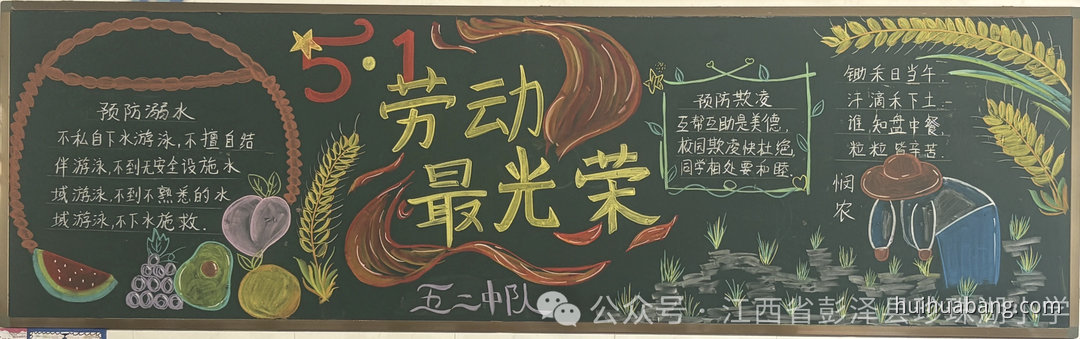 5·1
劳动
最光荣
预防溺水
不私自下水游泳,不擅自结
伴游泳,不到无安全设施水
域游泳,不到不熟悉的水
域游泳,不下水施救.
预防欺凌
互帮互助是美德,
校园欺凌快杜绝,
同学相处要和睦.
锄禾日当午.
汗滴禾下土.
谁知盘中餐.
粒粒皆辛苦.
悯农
五二中队
公众号·江西省彭泽县
小学
huihuabang.com